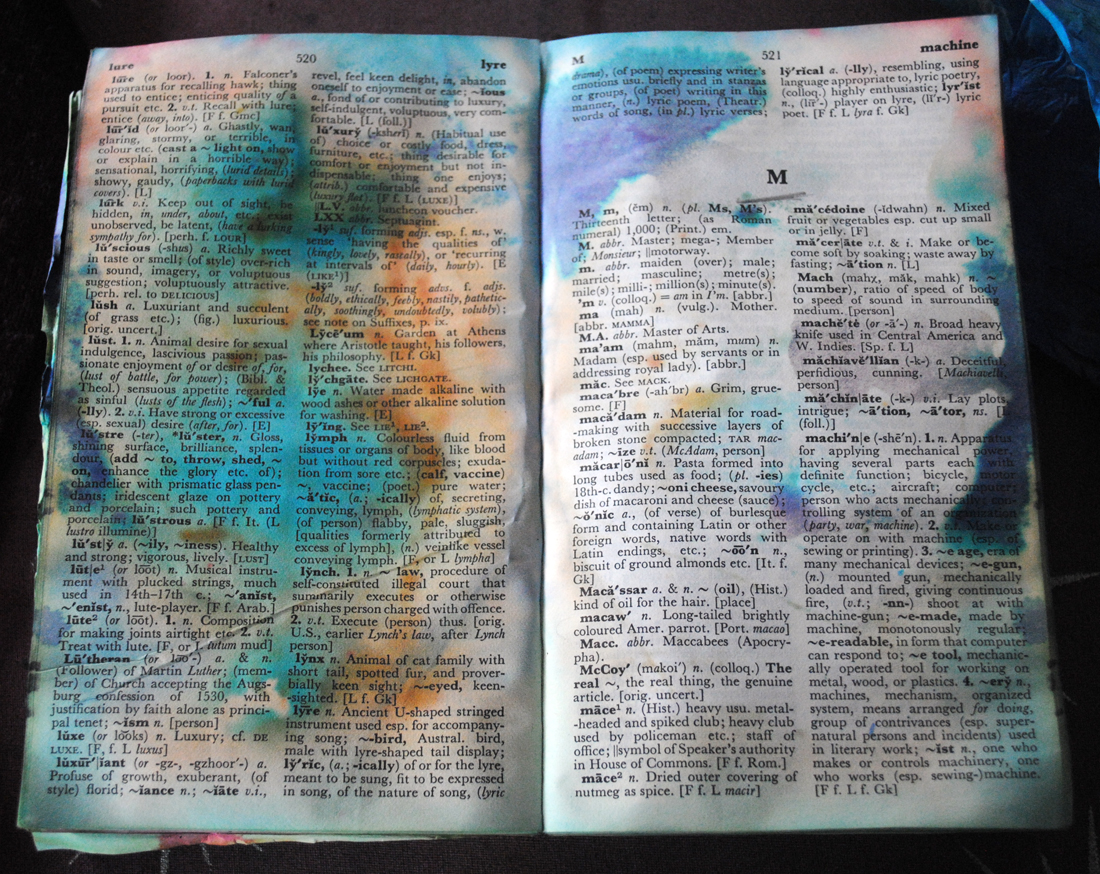 lure
520
lyre
lure (or loor). 1. n. Falconer's
apparatus for recalling hawk; thing
used to entice; enticing quality of a
pursuit etc. 2. v.t. Recall with lure;
entice (away, into). [F f. Gmc]
lūr'id (or loor'-) a. Ghastly, wan,
glaring, stormy, or terrible, in
colour etc. (cast a ~ light on, show
or explain in a horrible way);
sensational, horrifying, (lurid details);
showy, gaudy, (paperbacks with lurid
covers). [L]
lûrk v.i. Keep out of sight, be
hidden, in, under, about, etc.; exist
unobserved, be latent, (have a lurking
sympathy for). [perh. f. LOUR]
lŭ'scious (-shus) a. Richly sweet
in taste or smell; (of style) over-rich
in sound, imagery, or voluptuous
suggestion; voluptuously attractive.
[perh. rel. to DELICIOUS]
lŭsh a. Luxuriant and succulent
(of grass etc.); (fig.) luxurious.
[orig. uncert.]
lŭst. 1. n. Animal desire for sexual
indulgence, lascivious passion; pas-
sionate enjoyment of or desire of, for,
(lust of battle, for power); (Bibl. &
Theol.) sensuous appetite regarded
as sinful (lusts of the flesh); ~'ful a.
(-lly). 2. v.i. Have strong or excessive
(esp. sexual) desire (after, for). [E]
lŭ'stre (-ter), *lŭ'ster, n. Gloss,
shining surface, brilliance, splen-
dour, (add ~ to, throw, shed, ~
on, enhance the glory etc. of);
chandelier with prismatic glass pen-
dants; iridescent glaze on pottery
and porcelain; such pottery and
porcelain; lŭ'strous a. [F f. It. (L
lustro illumine)]
lŭ'st|y̆ a. (~ily, ~iness). Healthy
and strong; vigorous, lively. [LUST]
lūt|e¹ (or lo͞ot) n. Musical instru-
ment with plucked strings, much
used in 14th–17th c.; ~'anĭst,
~'enĭst, n., lute-player. [F f. Arab.]
lūte² (or lo͞ot). 1. n. Composition
for making joints airtight etc. 2. v.t.
Treat with lute. [F, or L lutum mud]
Lū'theran (or lo͞o'-) a. & n.
(Follower) of Martin Luther; (mem-
ber) of Church accepting the Augs-
burg confession of 1530, with
justification by faith alone as princi-
pal tenet; ~ĭsm n. [person]
lūxe (or lo͝oks) n. Luxury; cf. DE
LUXE. [F, f. L luxus]
lŭxūr'|iant (or -gz-, -gzhoor'-) a.
Profuse of growth, exuberant, (of
style) florid; ~ĭance n.; ~ĭāte v.i.,
revel, feel keen delight, in, abandon
oneself to enjoyment or ease; ~ĭous
a., fond of or contributing to luxury,
self-indulgent, voluptuous, very com-
fortable. [L (foll.)]
lŭ'xurȳ (-ksherĭ) n. (Habitual use
of) choice or costly food, dress,
furniture, etc.; thing desirable for
comfort or enjoyment but not in-
dispensable; thing one enjoys;
(attrib.) comfortable and expensive
(luxury flat). [F f. L (LUXE)]
||L.V. abbr. luncheon voucher.
LXX abbr. Septuagint.
-ly̆¹ suf. forming adjs. esp. f. ns., w.
sense 'having the qualities of'
(kingly, lovely, rascally), or 'recurring
at intervals of' (daily, hourly). [E
(LIKE¹)]
-ly̆² suf. forming advs. f. adjs.
(boldly, ethically, feebly, nastily, pathetic-
ally, soothingly, undoubtedly, volubly);
see note on Suffixes, p. ix.
Ly̆cē'um n. Garden at Athens
where Aristotle taught, his followers,
his philosophy. [L f. Gk]
lychee. See LITCHI.
ly̆'chgāte. See LICHGATE.
lȳe n. Water made alkaline with
wood ashes or other alkaline solution
for washing. [E]
lȳ'ing. See LIE¹, LIE².
ly̆mph n. Colourless fluid from
tissues or organs of body, like blood
but without red corpuscles; exuda-
tion from sore etc.; (calf, vaccine)
~, vaccine; (poet.) pure water;
~ă'tĭc, (a.; -ically) of, secreting,
conveying, lymph, (lymphatic system),
(of person) flabby, pale, sluggish,
[qualities formerly attributed to
excess of lymph], (n.) veinlike vessel
conveying lymph. [F, or L lympha]
ly̆nch. 1. n. ~ law, procedure of
self-constituted illegal court that
summarily executes or otherwise
punishes person charged with offence.
2. v.t. Execute (person) thus. [orig.
U.S., earlier Lynch's law, after Lynch
person]
ly̆nx n. Animal of cat family with
short tail, spotted fur, and prover-
bially keen sight; ~-eyed, keen-
-sighted. [L f. Gk]
lȳre n. Ancient U-shaped stringed
instrument used esp. for accompany-
ing song; ~-bird, Austral. bird,
male with lyre-shaped tail display;
ly̆'rĭc, (a.; -ically) of or for the lyre,
meant to be sung, fit to be expressed
in song, of the nature of song, (lyric
M
521
machine
drama), (of poem) expressing writer's
emotions usu. briefly and in stanzas
or groups, (of poet) writing in this
manner, (n.) lyric poem, (Theatr.)
words of song, (in pl.) lyric verses;
ly̆'rical a. (-lly), resembling, using
language appropriate to, lyric poetry,
(colloq.) highly enthusiastic; lyr'ĭst
n., (līr'-) player on lyre, (lĭ'r-) lyric
poet. [F f. L lyra f. Gk]
M
M, m, (ĕm) n. (pl. Ms, M's).
Thirteenth letter; (as Roman
numeral) 1,000; (Print.) em.
M. abbr. Master; mega-; Member
of; Monsieur; ||motorway.
m. abbr. maiden (over); male;
married; masculine; metre(s);
mile(s); milli-; million(s); minute(s).
'm v. (colloq.) = am in I'm. [abbr.]
ma (mah) n. (vulg.). Mother.
[abbr. MAMMA]
M.A. abbr. Master of Arts.
ma'am (mahm, măm, mum) n.
Madam (esp. used by servants or in
addressing royal lady). [abbr.]
măc. See MACK.
maca'bre (-ah'br) a. Grim, grue-
some. [F]
maca'dam n. Material for road-
-making with successive layers of
broken stone compacted; TAR mac-
adam; ~ize v.t. (McAdam, person]
măcar|ō'nĭ n. Pasta formed into
long tubes used as food; (pl. -ies)
18th-c. dandy; ~oni cheese, savoury
dish of macaroni and cheese (sauce);
~ŏ'nĭc a., (of verse) of burlesque
form and containing Latin or other
foreign words, native words with
Latin endings, etc.; ~o͞o'n n.,
biscuit of ground almonds etc. [It. f.
Gk]
Macă'ssar a. & n. ~ (oil), (Hist.)
kind of oil for the hair. [place]
macaw' n. Long-tailed brightly
coloured Amer. parrot. [Port. macao]
Macc. abbr. Maccabees (Apocry-
pha).
McCoy' (makoi') n. (colloq.) The
real ~, the real thing, the genuine
article. [orig. uncert.]
māce¹ n. (Hist.) heavy usu. metal-
-headed and spiked club; heavy club
used by policeman etc.; staff of
office; ||symbol of Speaker's authority
in House of Commons. [F f. Rom.]
māce² n. Dried outer covering of
nutmeg as spice. [F f. L macir]
mă'cédoine (-ĭdwahn) n. Mixed
fruit or vegetables esp. cut up small
or in jelly. [F]
mă'cer|āte v.t. & i. Make or be-
come soft by soaking; waste away by
fasting; ~ā'tion n. [L]
Mach (mahχ, măk, mahk) n. ~
(number), ratio of speed of body
to speed of sound in surrounding
medium. [person]
machĕ'tė (or -ā'-) n. Broad heavy
knife used in Central America and
W. Indies. [Sp. f. L]
măchiavĕ'llĭan (-k-) a. Deceitful,
perfidious, cunning. [Machiavelli,
person]
mă'chĭn|āte (-k-) v.i. Lay plots,
intrigue; ~ā'tion, ~ā'tor, ns. [L
(foll.)]
machi'n|e (-shē'n). 1. n. Apparatus
for applying mechanical power,
having several parts each with
definite function; bicycle, motor
cycle, etc.; aircraft; computer;
person who acts mechanically; con-
trolling system of an organization
(party, war, machine). 2. v.t. Make or
operate on with machine (esp. of
sewing or printing). 3. ~e age, era of
many mechanical devices; ~e-gun,
(n.) mounted gun, mechanically
loaded and fired, giving continuous
fire, (v.t.; -nn-) shoot at with
machine-gun; ~e-made, made by
machine, monotonously regular;
~e-readable, in form that computer
can respond to; ~e tool, mechanic-
ally operated tool for working on
metal, wood, or plastics. 4. ~erȳ n.,
machines, mechanism, organized
system, means arranged for doing,
group of contrivances (esp. super-
natural persons and incidents) used
in literary work; ~ĭst n., one who
makes or controls machinery, one
who works (esp. sewing-)machine.
[F f. L f. Gk]